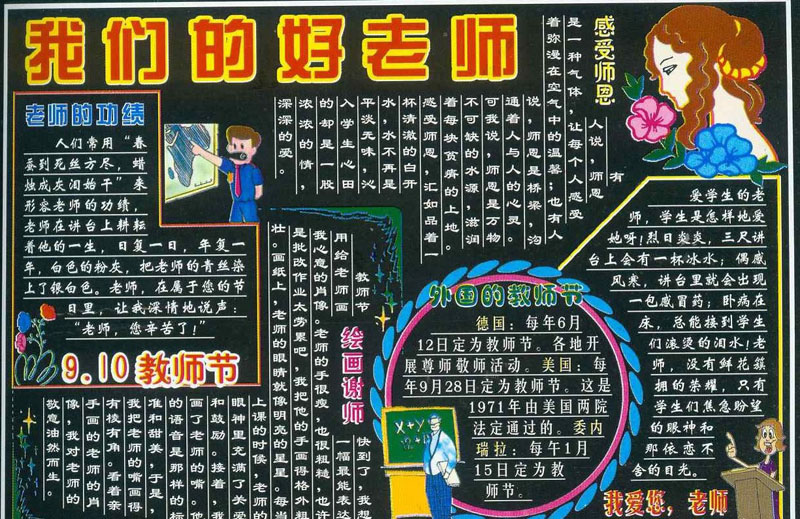 我们的好老师
老师的功绩
人们常用“春
蚕到死丝方尽，蜡
烛成灰泪始干”来
形容老师的功绩，
老师在讲台上耕耘
着他的一生，日复一日，年复一
年，白色的粉灰，把老师的青丝染
上了银白色。老师，在属于您的节
日里，让我深情地说声：
“老师，您辛苦了！”
9.10 教师节
感受师恩
有
人说，师恩
是一种气体，让每个人感受
着弥漫在空气中的温馨；也有人
说，师恩是桥梁，沟
通着人与人的心灵。
可我说，师恩是万物
不可缺的水源，滋润
着每块贫瘠的上地。
感受师恩，汇如品着一
杯清澈的白开
水，水不再是
平淡无味，沁
入学生心田
的却是一股
浓浓的情，
深深的爱。
绘画谢师
教师节快到了，我想
用给老师画一幅最能表达
我心意的肖像。老师的手很瘦，也很粗糙，也许
是批改作业太劳累吧，我把他的手画得格外粗
壮。画纸上，老师的眼睛就像明亮的星星。每当
上课的时候，老师的
眼神里充满了关爱
和鼓励。接着，我
画了老师的嘴。他
的语音是那样的标
准和甜美，于是，
我把老师的嘴画得
有棱有角。看着亲
手画的老师的肖
像，我对老师的
敬意油然而生。
外国的教师节
德国：每年6月
12日定为教师节。各地开
展尊师敬师活动。美国：每
年9月28日定为教师节。这是
1971年由美国两院
法定通过的。委内
瑞拉：每午1月
15日定为教
师节。
X+Y
爱学生的老
师，学生是怎样地爱
她呀!烈日炎炎，三尺讲
台上会有一杯冰水；偶感
风寒，讲台里就会出现
一包感冒药；卧病在
床，总能接到学生
们滚烫的泪水！老
师，没有鲜花簇
拥的荣耀，只有
学生们焦急盼望
的眼神和
那依恋不
舍的目光。
我爱您，老师